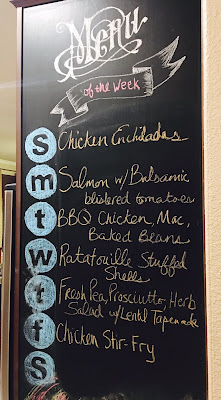 Menu
of the Week
S Chicken Enchiladas
m Salmon w/Balsamic
blistered tomatoes
t BBQ Chicken, Mac,
Baked Beans
w Ratatouille Stuffed
Shells
t Fresh Pea, Prosciutto, Herb
Salad w/Lentil Tapenade
f Chicken Stir-Fry
S